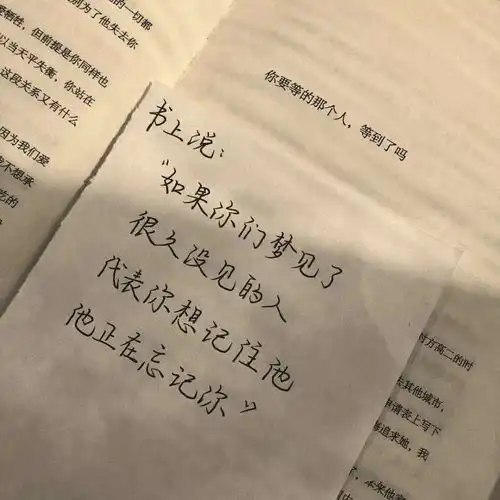 的一切都
别为了他失去你
爱牺牲，但前提是你同样也
以当天平失衡，你站在
这段关系又有什么
因为我们爱
我不想承
吃的
你要等的那个人，等到了吗
书上说：
“如果你们梦见了
很久没见的人
代表你想记住他
他正在忘记你”
对方高二的时
去其他城市，
申请表上写下
追求她，我